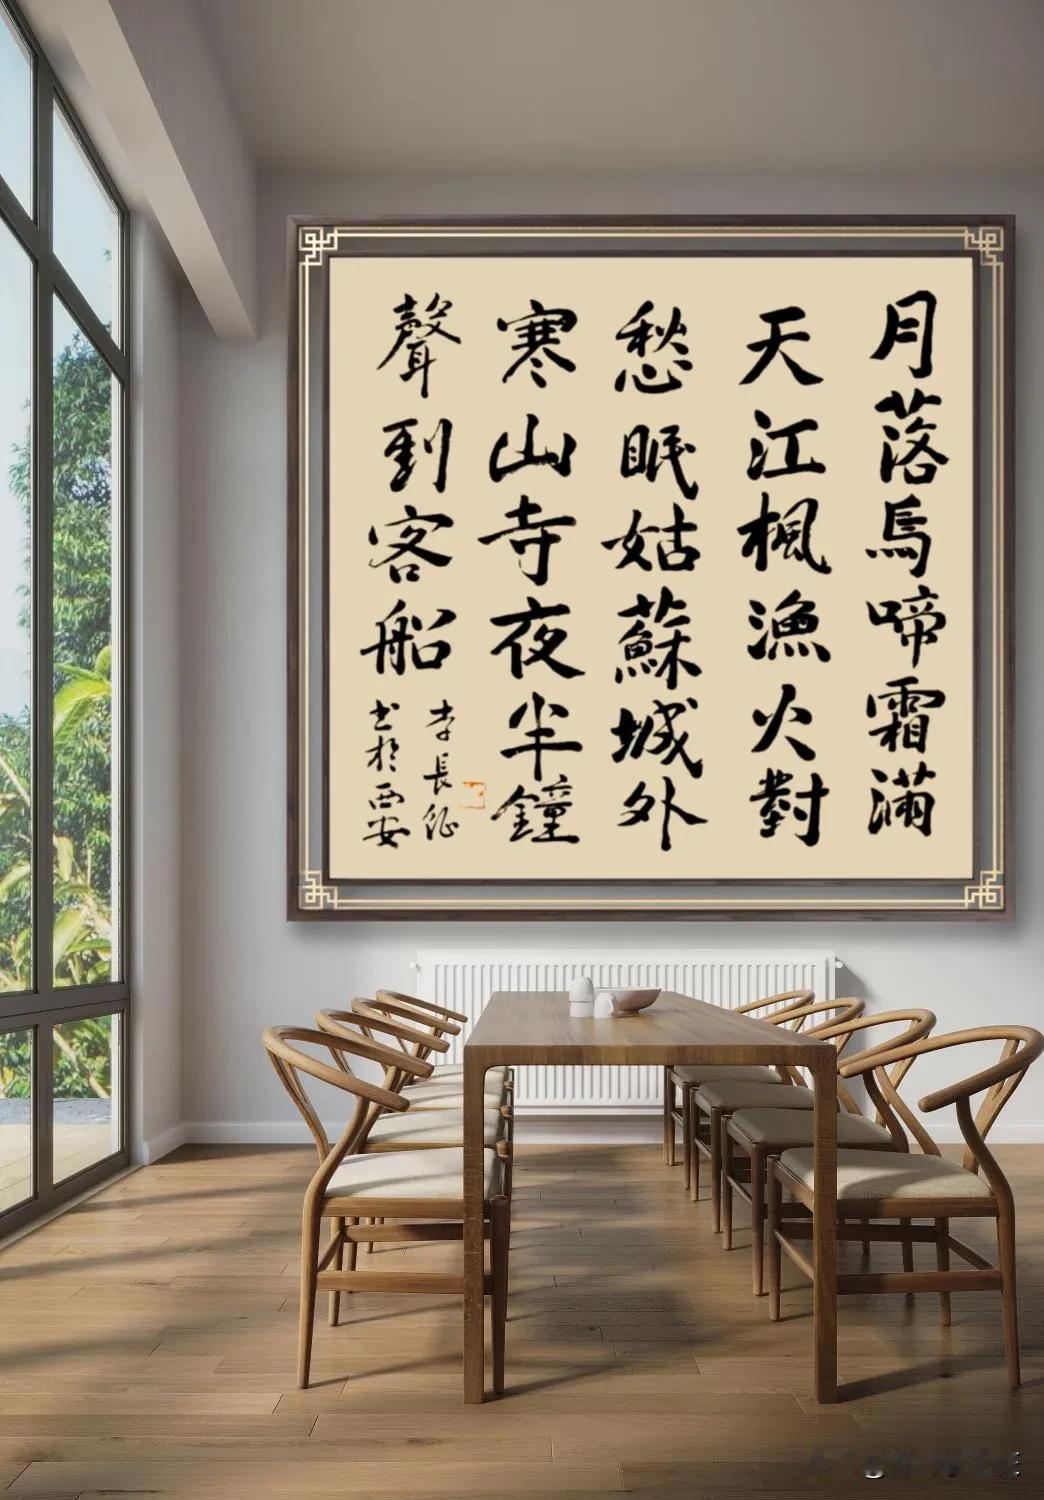 月落烏啼霜滿
天江楓漁火對
愁眠姑蘇城外
寒山寺夜半鐘
聲到客船
李長征
书於西安